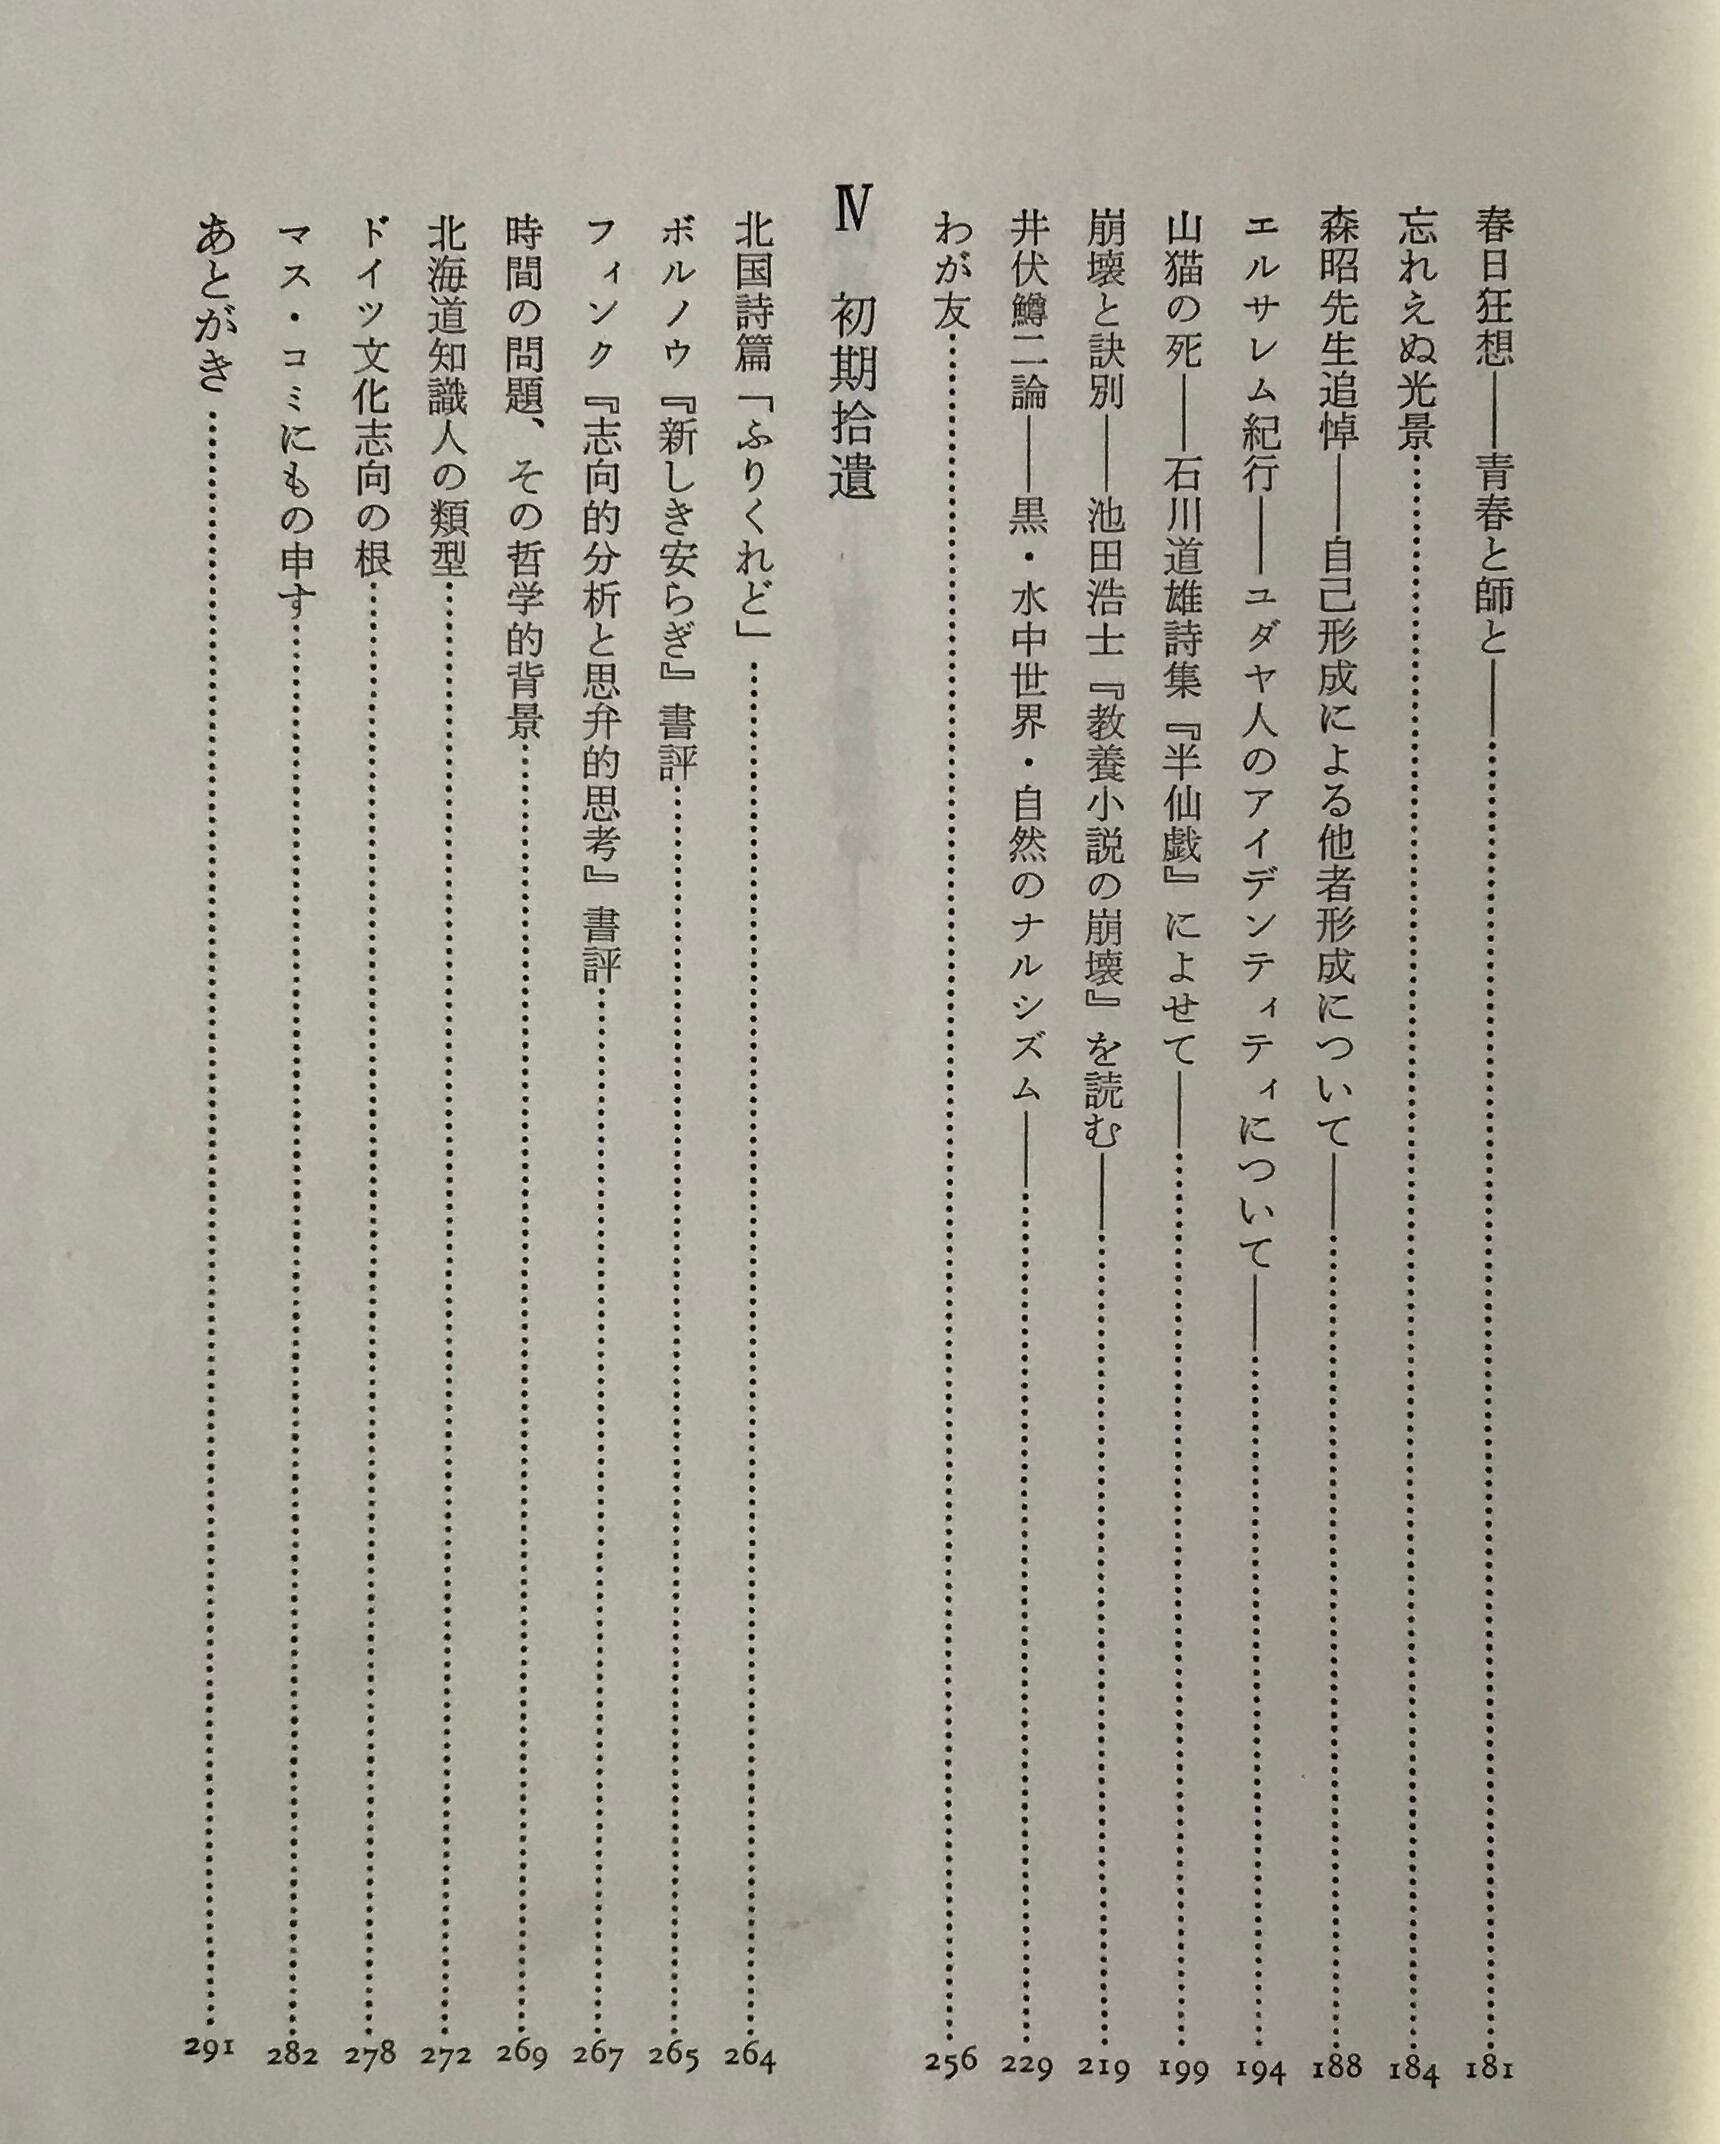 春日狂想――青春と師と――……181
忘れえぬ光景……184
森昭先生追悼――自己形成による他者形成について――……188
エルサレム紀行――ユダヤ人のアイデンティティについて――……194
山猫の死――石川道雄詩集『半仙戯』によせて――……199
崩壊と訣別――池田浩士『教養小説の崩壊』を読む――……219
井伏鱒二論――黒・水中世界・自然のナルシズム――……229
わが友……256
Ⅳ 初期拾遺
北国詩篇「ふりくれど」……264
ボルノウ『新しき安らぎ』書評……265
フィンク『志向的分析と思弁的思考』書評……267
時間の問題、その哲学的背景……269
北海道知識人の類型……272
ドイツ文化志向の根……278
マス・コミにもの申す……282
あとがき……291